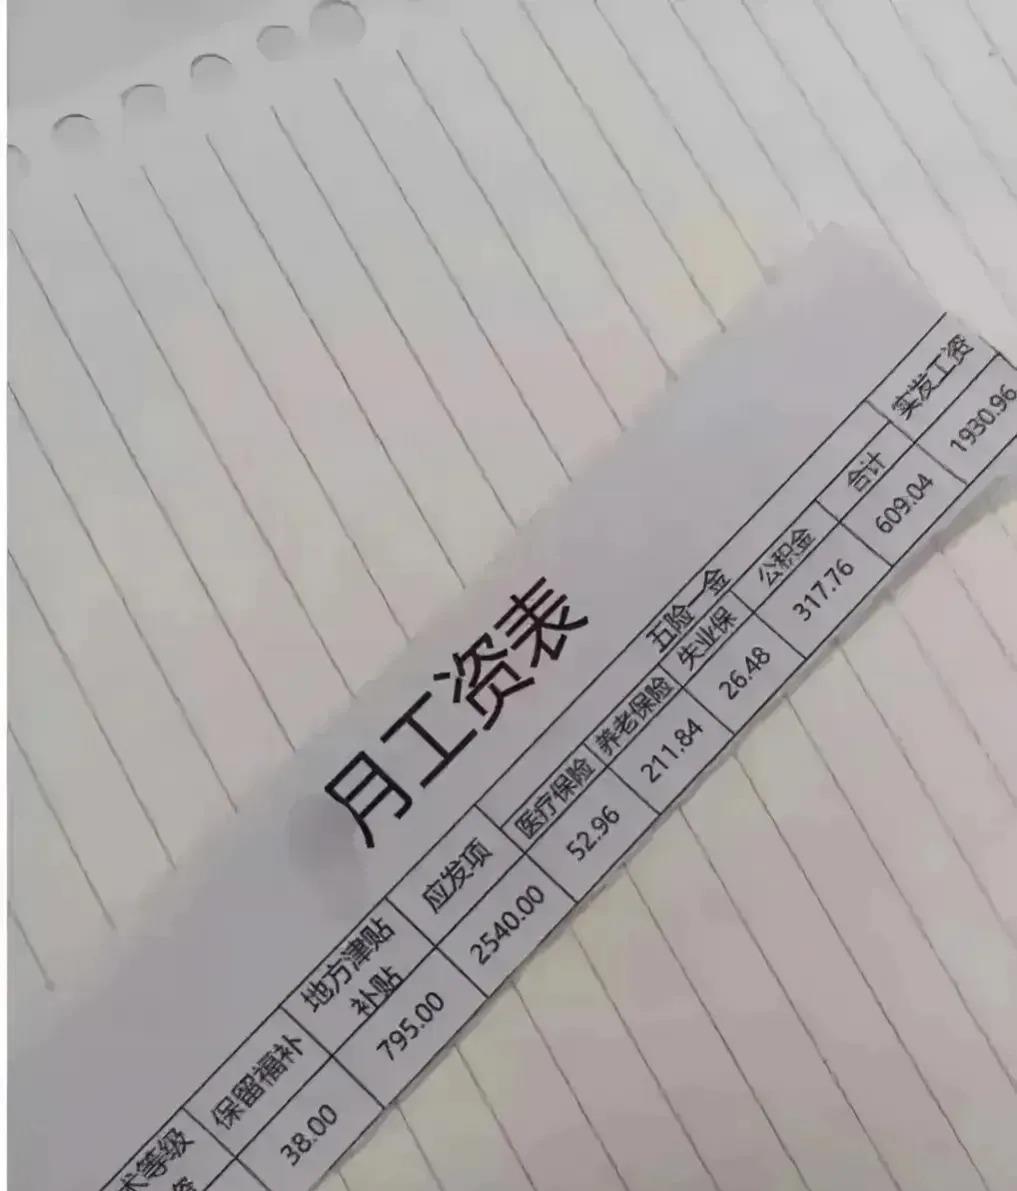 月工资表
术等级
保留福补
地方津贴
补贴
应发项
五险一金
医疗保险
养老保险
失业保
公积金
合计
实发工资
38.00
795.00
2540.00
52.96
211.84
26.48
317.76
609.04
1930.96